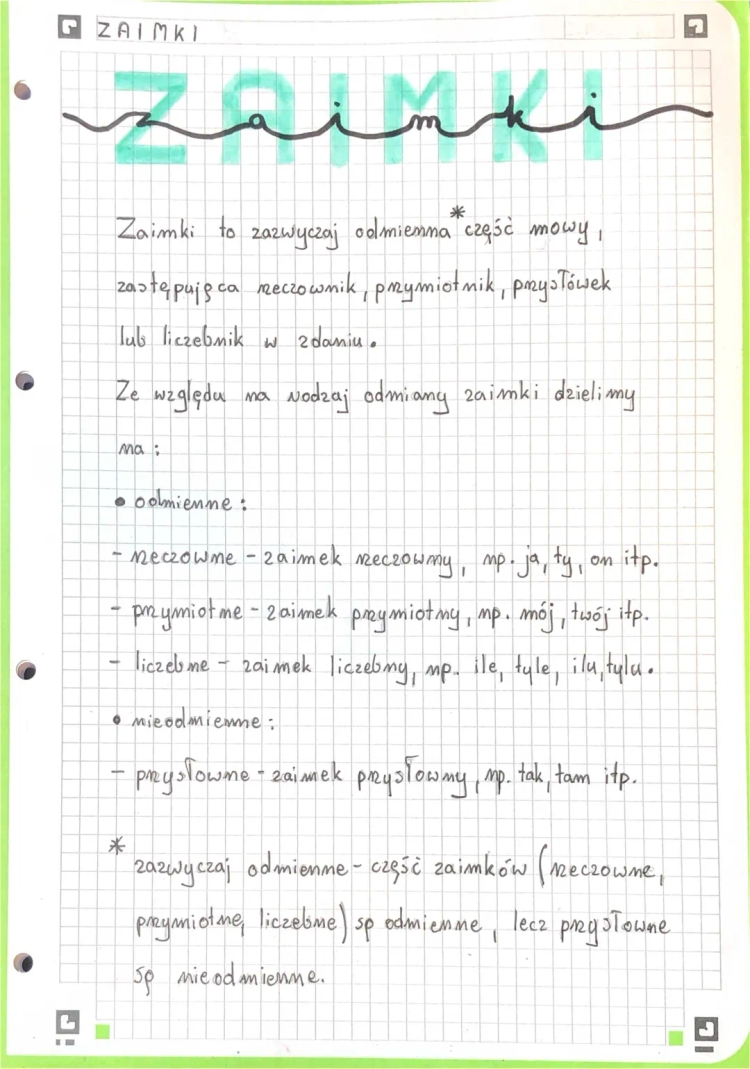 ZAIMKI
ZAIMKI
zaimki
Zaimki to zazwyczaj odmienna* część mowy,
zastępująca rzeczownik, przymiotnik, przysłówek
lub liczebnik w zdaniu.
Ze względu na rodzaj odmiany zaimki dzielimy
na:
• odmienne:
- rzeczowne - zaimek rzeczowny, np. ja, ty, on itp.
- przymiotne - zaimek przymiotny, np. mój, twój itp.
- liczebne - zaimek liczebny, np. ile, tyle, ilu, tylu.
• nieodmienne:
- przysłowne - zaimek przysłowny, np. tak, tam itp.
* zazwyczaj odmienne - część zaimków (rzeczowne,
przymiotne, liczebne) są odmienne, lecz przysłowne
są nieodmienne.